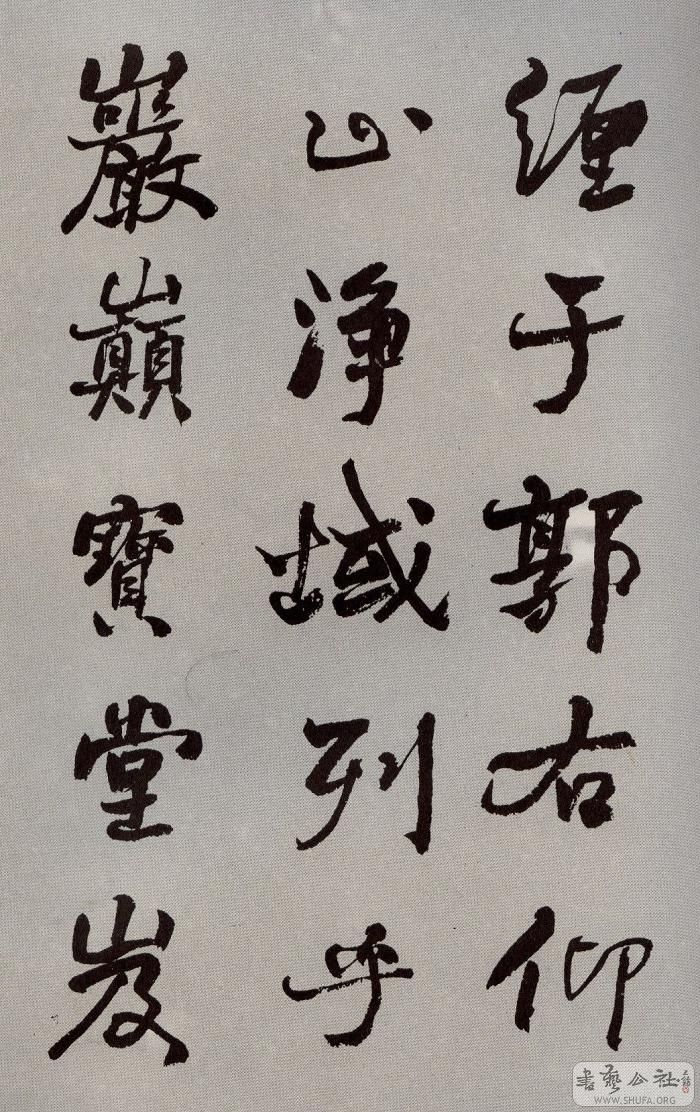 缠于郭右仰
止净域列乎
巖巔寶堂岌
書藝公社
WWW.SHUFA.ORG